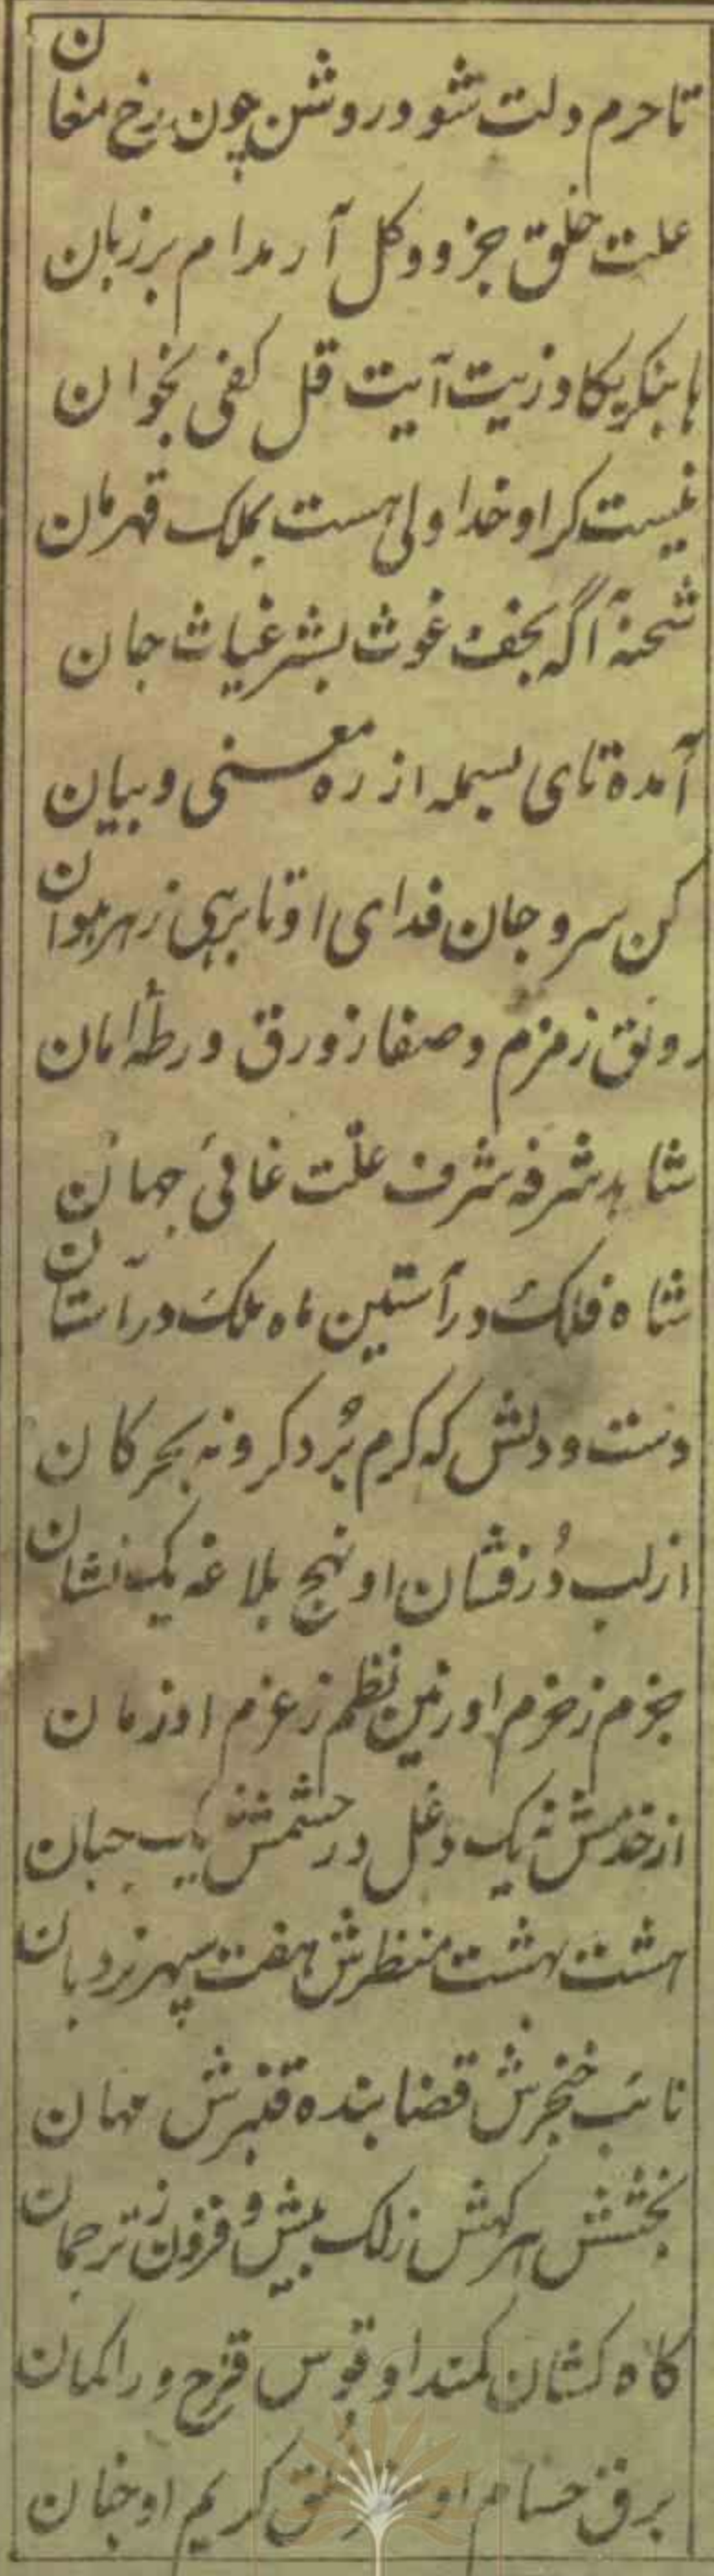 تا حرم دلت شود روشن چون رخ مغان
علت خلق جزو و کل آر مدام بر زبان
آیت قل کفی بخوان
نیست کر او خدا ولی هست بملک قهرمان
شحنهٔ آگه نجف غوث بشر غیاث جان
آمده تای بسمله از ره معنی و بیان
کن سر و جان فدای او تا برهی زهر هوان
رونق زمزم و صفا زورق ورطهٔ امان
شاهد شرفه شرف علّت غائی جهان
شاه فلک در آستین ماه ملک در آستان
دست و دلش که کرم بُرد کرو نه بحر کان
از لب دُر فشان او نهج بلاغه یک نشان
جزم ز حزم او زمین نظم ز عزم او زمان
از خدمش نه یک دغل در حشمش نه یک جبان
هشت بهشت منظرش هفت سپهر نردبان
نائب خنجرش قضا بنده قنبرش مهان
بخشش هر کهش زلک بیش و فزون ز ترجمان
کاه کشان کمند او قوس قزح ورا کمان
برق حسام او خلق کریم او جنان